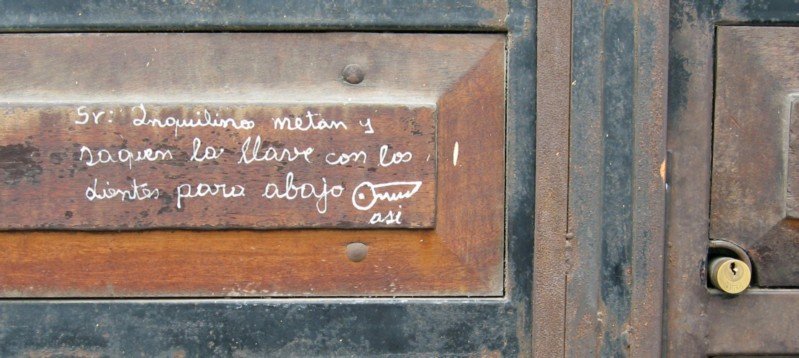 Sr: Inquilinos metan y
saquen la llave con los
dientes para abajo
asi